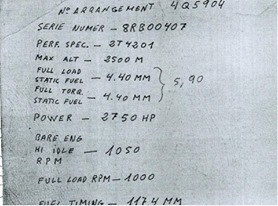 Nº ARRANGEMENT 4Q5904
SERIE NUMER - 8RB00407
PERF. SPEC. - 2T4201
MAX ALT - 2500 M
FULL LOAD
STATIC FUEL - 4.40 MM
FULL TORQ.
STATIC FUEL - 4.40 MM
5,90
POWER - 2750 HP
BARE ENG
HI IDLE - 1050
RPM
FULL LOAD RPM - 1000
FUEL TIMING - 117.4 MM